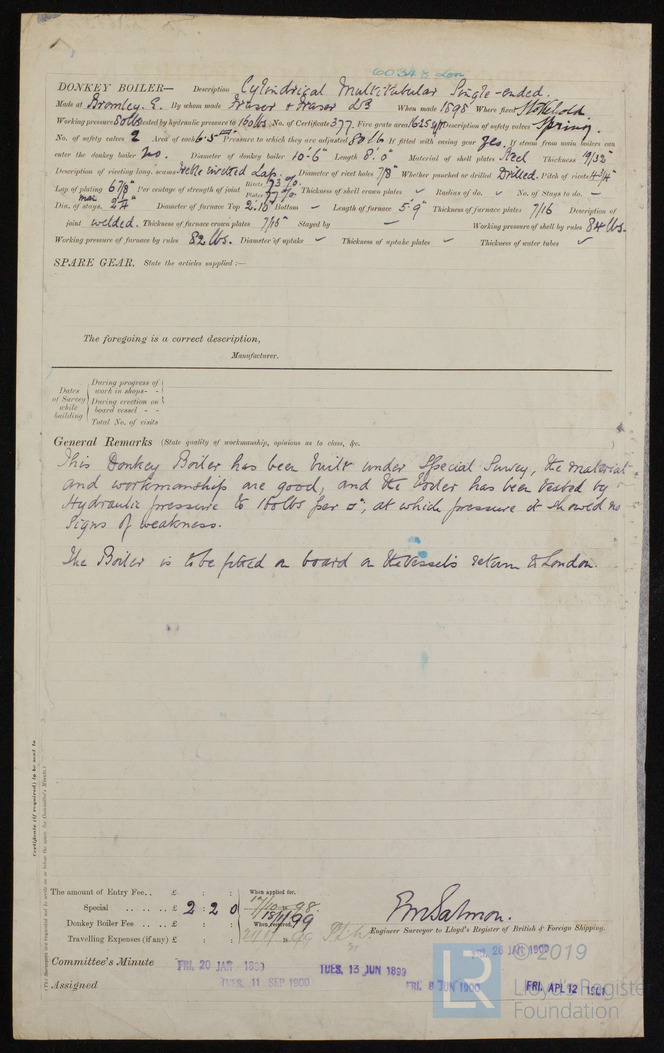 60348 Lon
DONKEY BOILER— Description Cylindrical Multitubular Single-ended.
Made at Bromley. E. By whom made Fraser & Fraser Ld When made 1898 Where fixed Stokehold.
Working pressure 80 lbs tested by hydraulic pressure to 160 lbs No. of Certificate 377. Fire grate area 16.25 Description of safety valves Spring.
No. of safety valves 2 Area of each 6.5 Pressure to which they are adjusted 80 lb If fitted with easing gear yes. If steam from main boilers can
enter the donkey boiler no. Diameter of donkey boiler 10'.6" Length 8'.0" Material of shell plates Steel Thickness 19/32"
Description of riveting long. seams Treble riveted Lap. Diameter of rivet holes 7/8" Whether punched or drilled Drilled. Pitch of rivets 4 1/4"
Lap of plating 6 7/8" Per centage of strength of joint Rivets 73 % Plates 77 %. Thickness of shell crown plates ✓ Radius of do. ✓ No. of Stays to do. —
Dia. of stays. 2 1/4" Diameter of furnace Top 2'.10" Bottom — Length of furnace 5'.9" Thickness of furnace plates 7/16 Description of
joint welded. Thickness of furnace crown plates 7/16" Stayed by — Working pressure of shell by rules 84 lbs.
Working pressure of furnace by rules 82 lbs. Diameter of uptake ✓ Thickness of uptake plates ✓ Thickness of water tubes ✓
SPARE GEAR. State the articles supplied:—
The foregoing is a correct description,
Manufacturer.
Dates of Survey while building
During progress of work in shops - -
During erection on board vessel - -
Total No. of visits
General Remarks (State quality of workmanship, opinions as to class, &c.
This Donkey Boiler has been built under Special Survey, the material
and workmanship are good, and the boiler has been tested by
Hydraulic pressure to 160 lbs per □", at which pressure it showed no
signs of weakness.
The Boiler is to be fitted on board on the vessel's return to London.
Certificate (if required) to be sent to
(The Surveyors are requested not to write on or below the space for Committee's Minute.)
The amount of Entry Fee. . £ : : When applied for,
Special . . . . . . £ 2 : 2 : 0
Donkey Boiler Fee . . . £ : : When received,
Travelling Expenses (if any) £ : :
18/1/99
EM Salmon.
Engineer Surveyor to Lloyd's Register of British & Foreign Shipping.
FRI. 26 JAN 1900
Committee's Minute FRI. 20 JAN 1899 TUES. 13 JUN 1899
Assigned TUES. 11 SEP 1900 FRI. 8 JUN 1900 FRI. APL 12 1901
LR © 2019
Lloyd's Register
Foundation